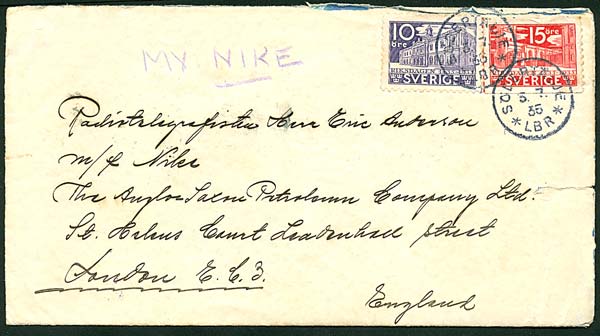 MY NIKE
10 öre
15 öre
SVERIGE
SVERIGE
35
* LBR *
Radiotelegrafisten Herr Eric Anderson
m/f Nike
The Anglo Saxon Petroleum Company Ltd.
St. Helens Court Leadenhall street
London E.C.3.
England